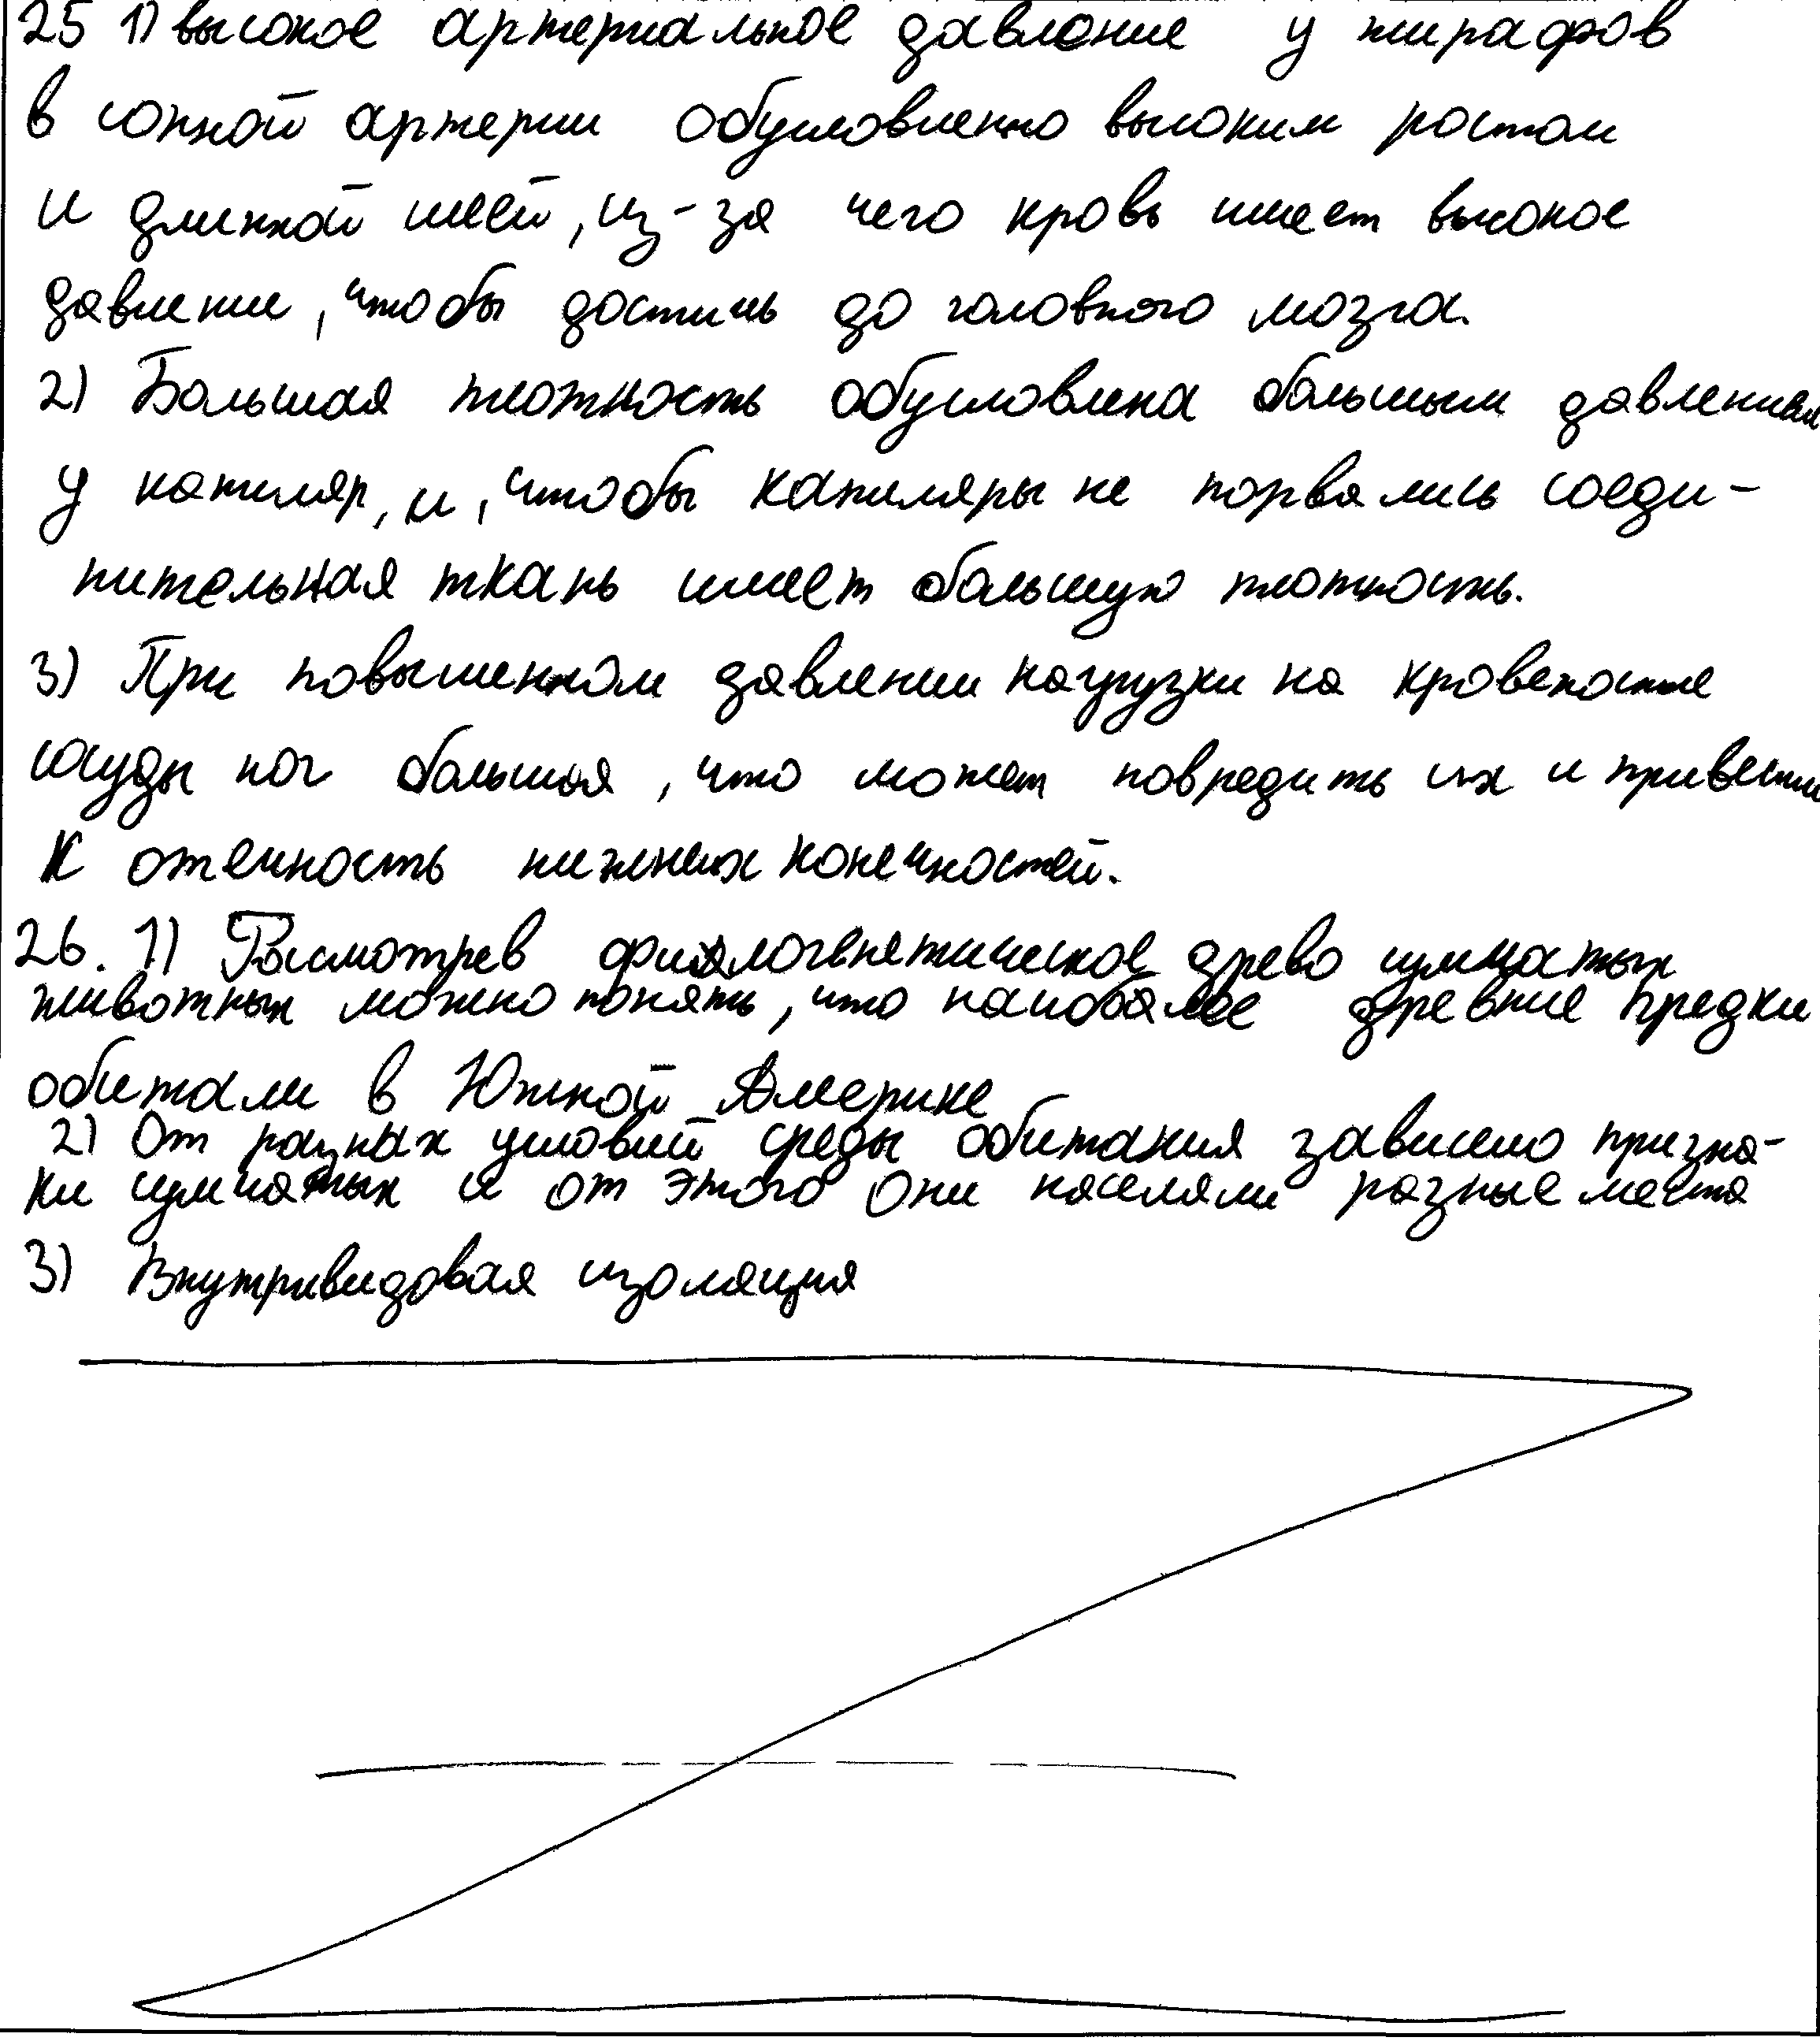 25 1) высокое артериальное давление у жирафов
в сонной артерии обусловленно высоким ростом
и длинной шеей, из-за чего кровь имеет высокое
давление, чтобы достичь до головного мозга.
2) Большая плотность обусловлена большим давлением
у капиляр, и, чтобы капиляры не порвались соеди-
нительная ткань имеет большую плотность.
3) При повышенном давлении нагрузки на кровеносные
сосуды ног большая, что может повредить их и привести
к отечность нижних конечностей.
26. 1) Рассмотрев филогенетическое древо сумчатых
животных можно понять, что наиболее древние предки
обитали в Южной Америке
2) От разных условий среды обитания зависело призна-
ки сумчатых и от этого они населяли разные места
3) Внутривидовая изоляция